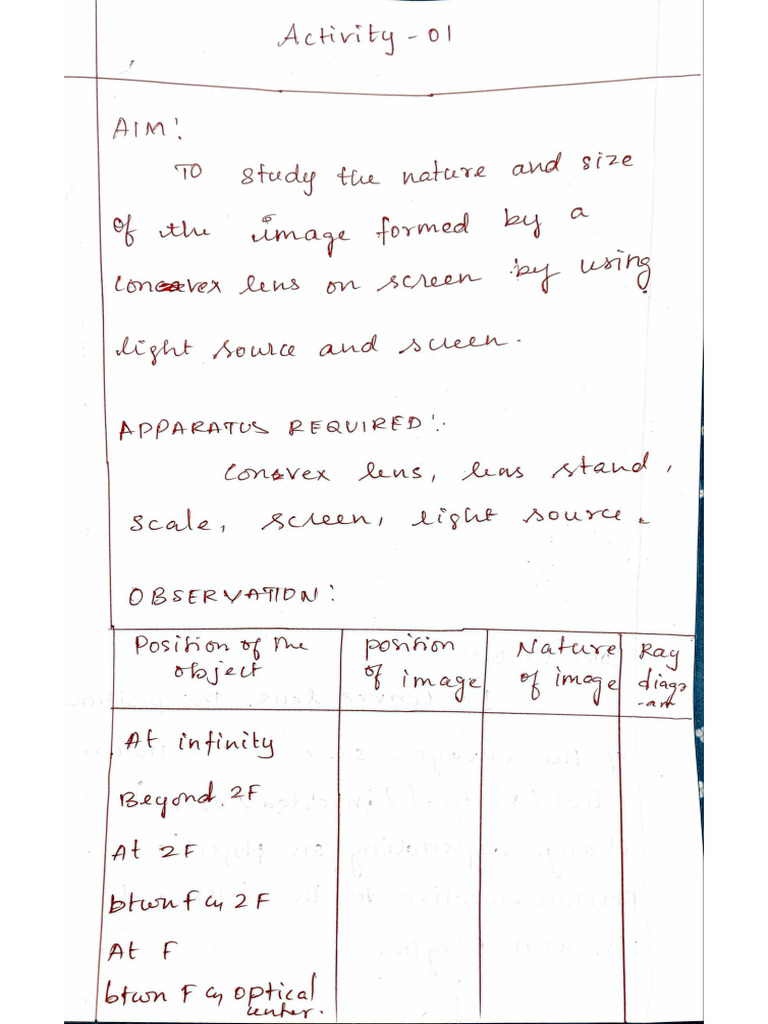 Activity - 01
AIM:
To study the nature and size
of the image formed by a
convex lens on screen by using
light source and screen.
APPARATUS REQUIRED:
Convex lens, lens stand,
scale, screen, light source.
OBSERVATION:
Position of the object | position of image | Nature of image | Ray diagr-am
At infinity
Beyond 2F
At 2F
btwn F & 2F
At F
btwn F & optical
center.